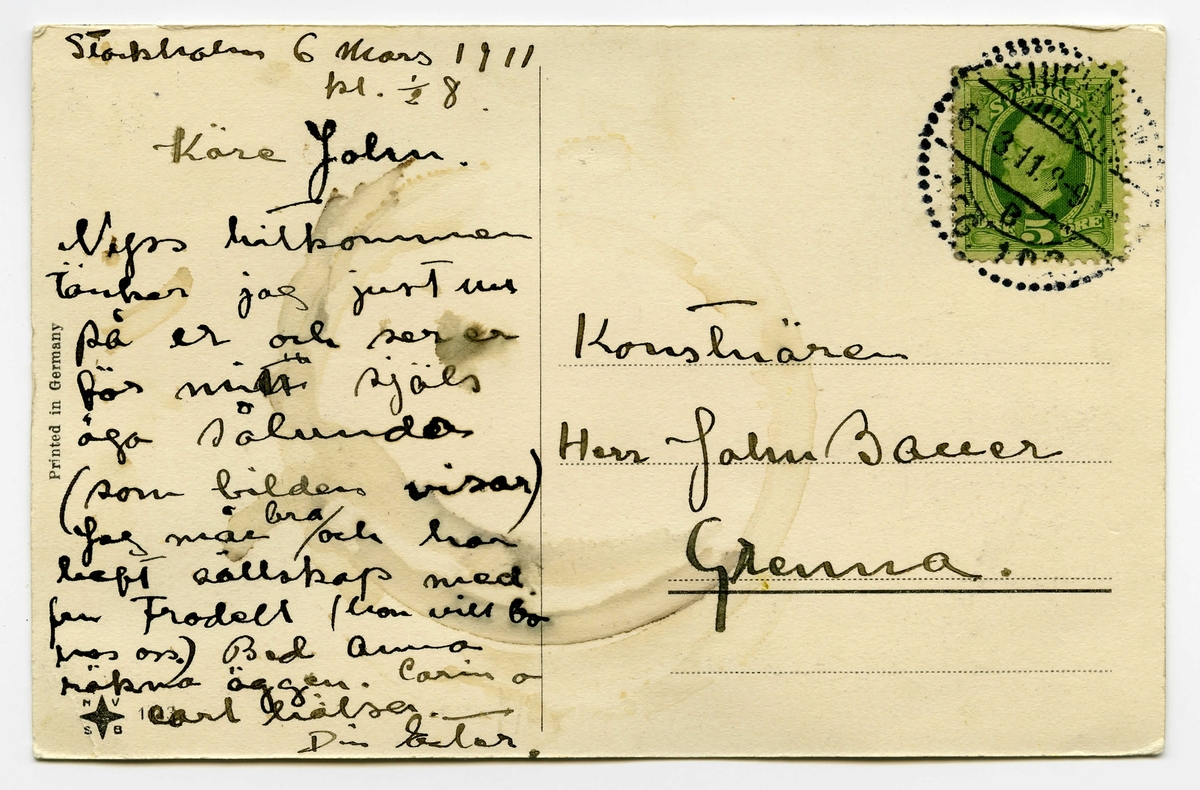 Stockholm 6 Mars 1911
kl. ½ 8.
Käre John.
Nyss hitkommen
tänker jag just nu
på er och ser er
för mitt själs
öga sålunda
(som bilden visar)
Jag mår bra och har
haft sällskap med
frk Frodell (hon vill bo
hos oss.) Bed Anna
räkna äggen. Carin o
Carl hälsar.
Din Ester.
Printed in Germany
N V
S B
SVERIGE
5 ÖRE
6 3.11.8-9
Konstnären
Herr John Bauer
Grenna.